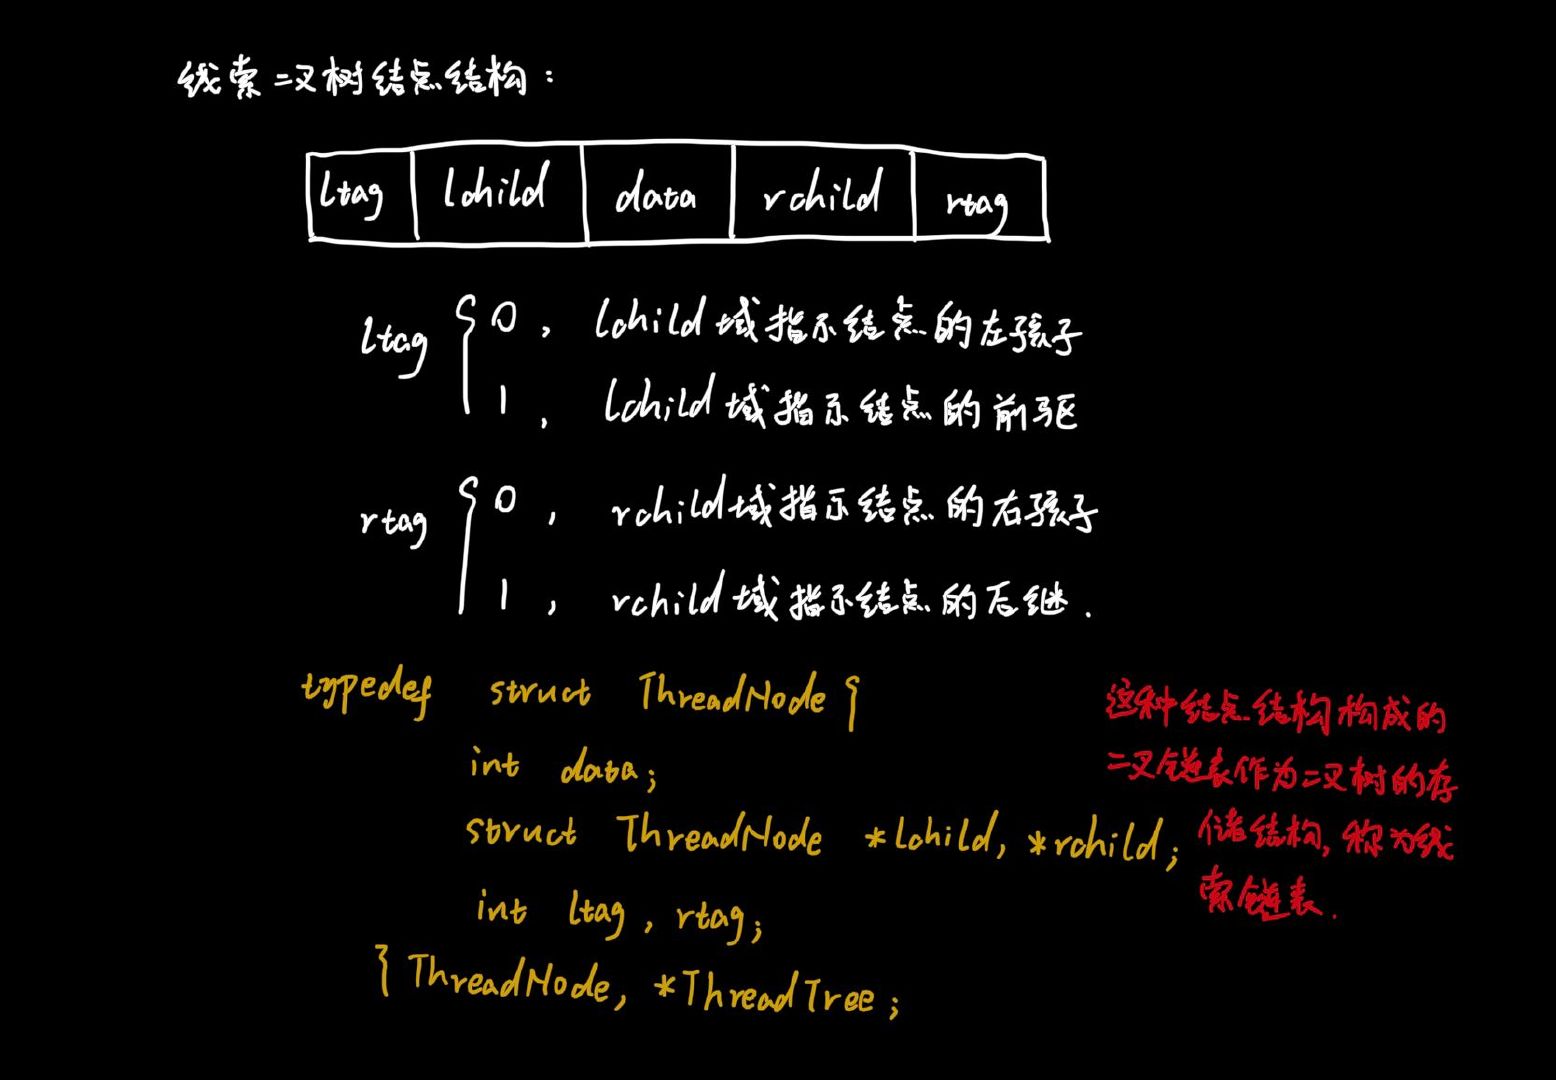 线索二叉树结点结构：
ltag lchild data rchild rtag
ltag { 0 , lchild域指示结点的左孩子
1 , lchild域指示结点的前驱
rtag { 0 , rchild域指示结点的右孩子
1 , rchild域指示结点的后继.
typedef struct ThreadNode {
int data;
struct ThreadNode *lchild, *rchild;
int ltag, rtag;
} ThreadNode, *ThreadTree;
这种结点结构构成的
二叉链表作为二叉树的存
储结构, 称为线
索链表.